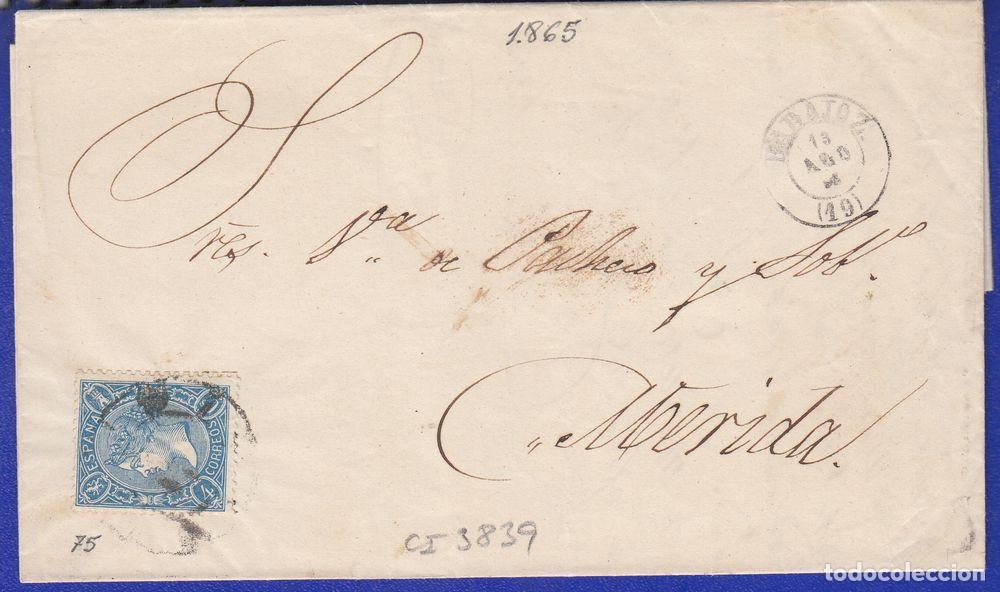 1.865
BADAJOZ
13
AGO
(19)
Sres. Vda de Pacheco y Sobo.
„Merida.
ESPAÑA
CORREOS
4
75
CI 3839
todocoleccion